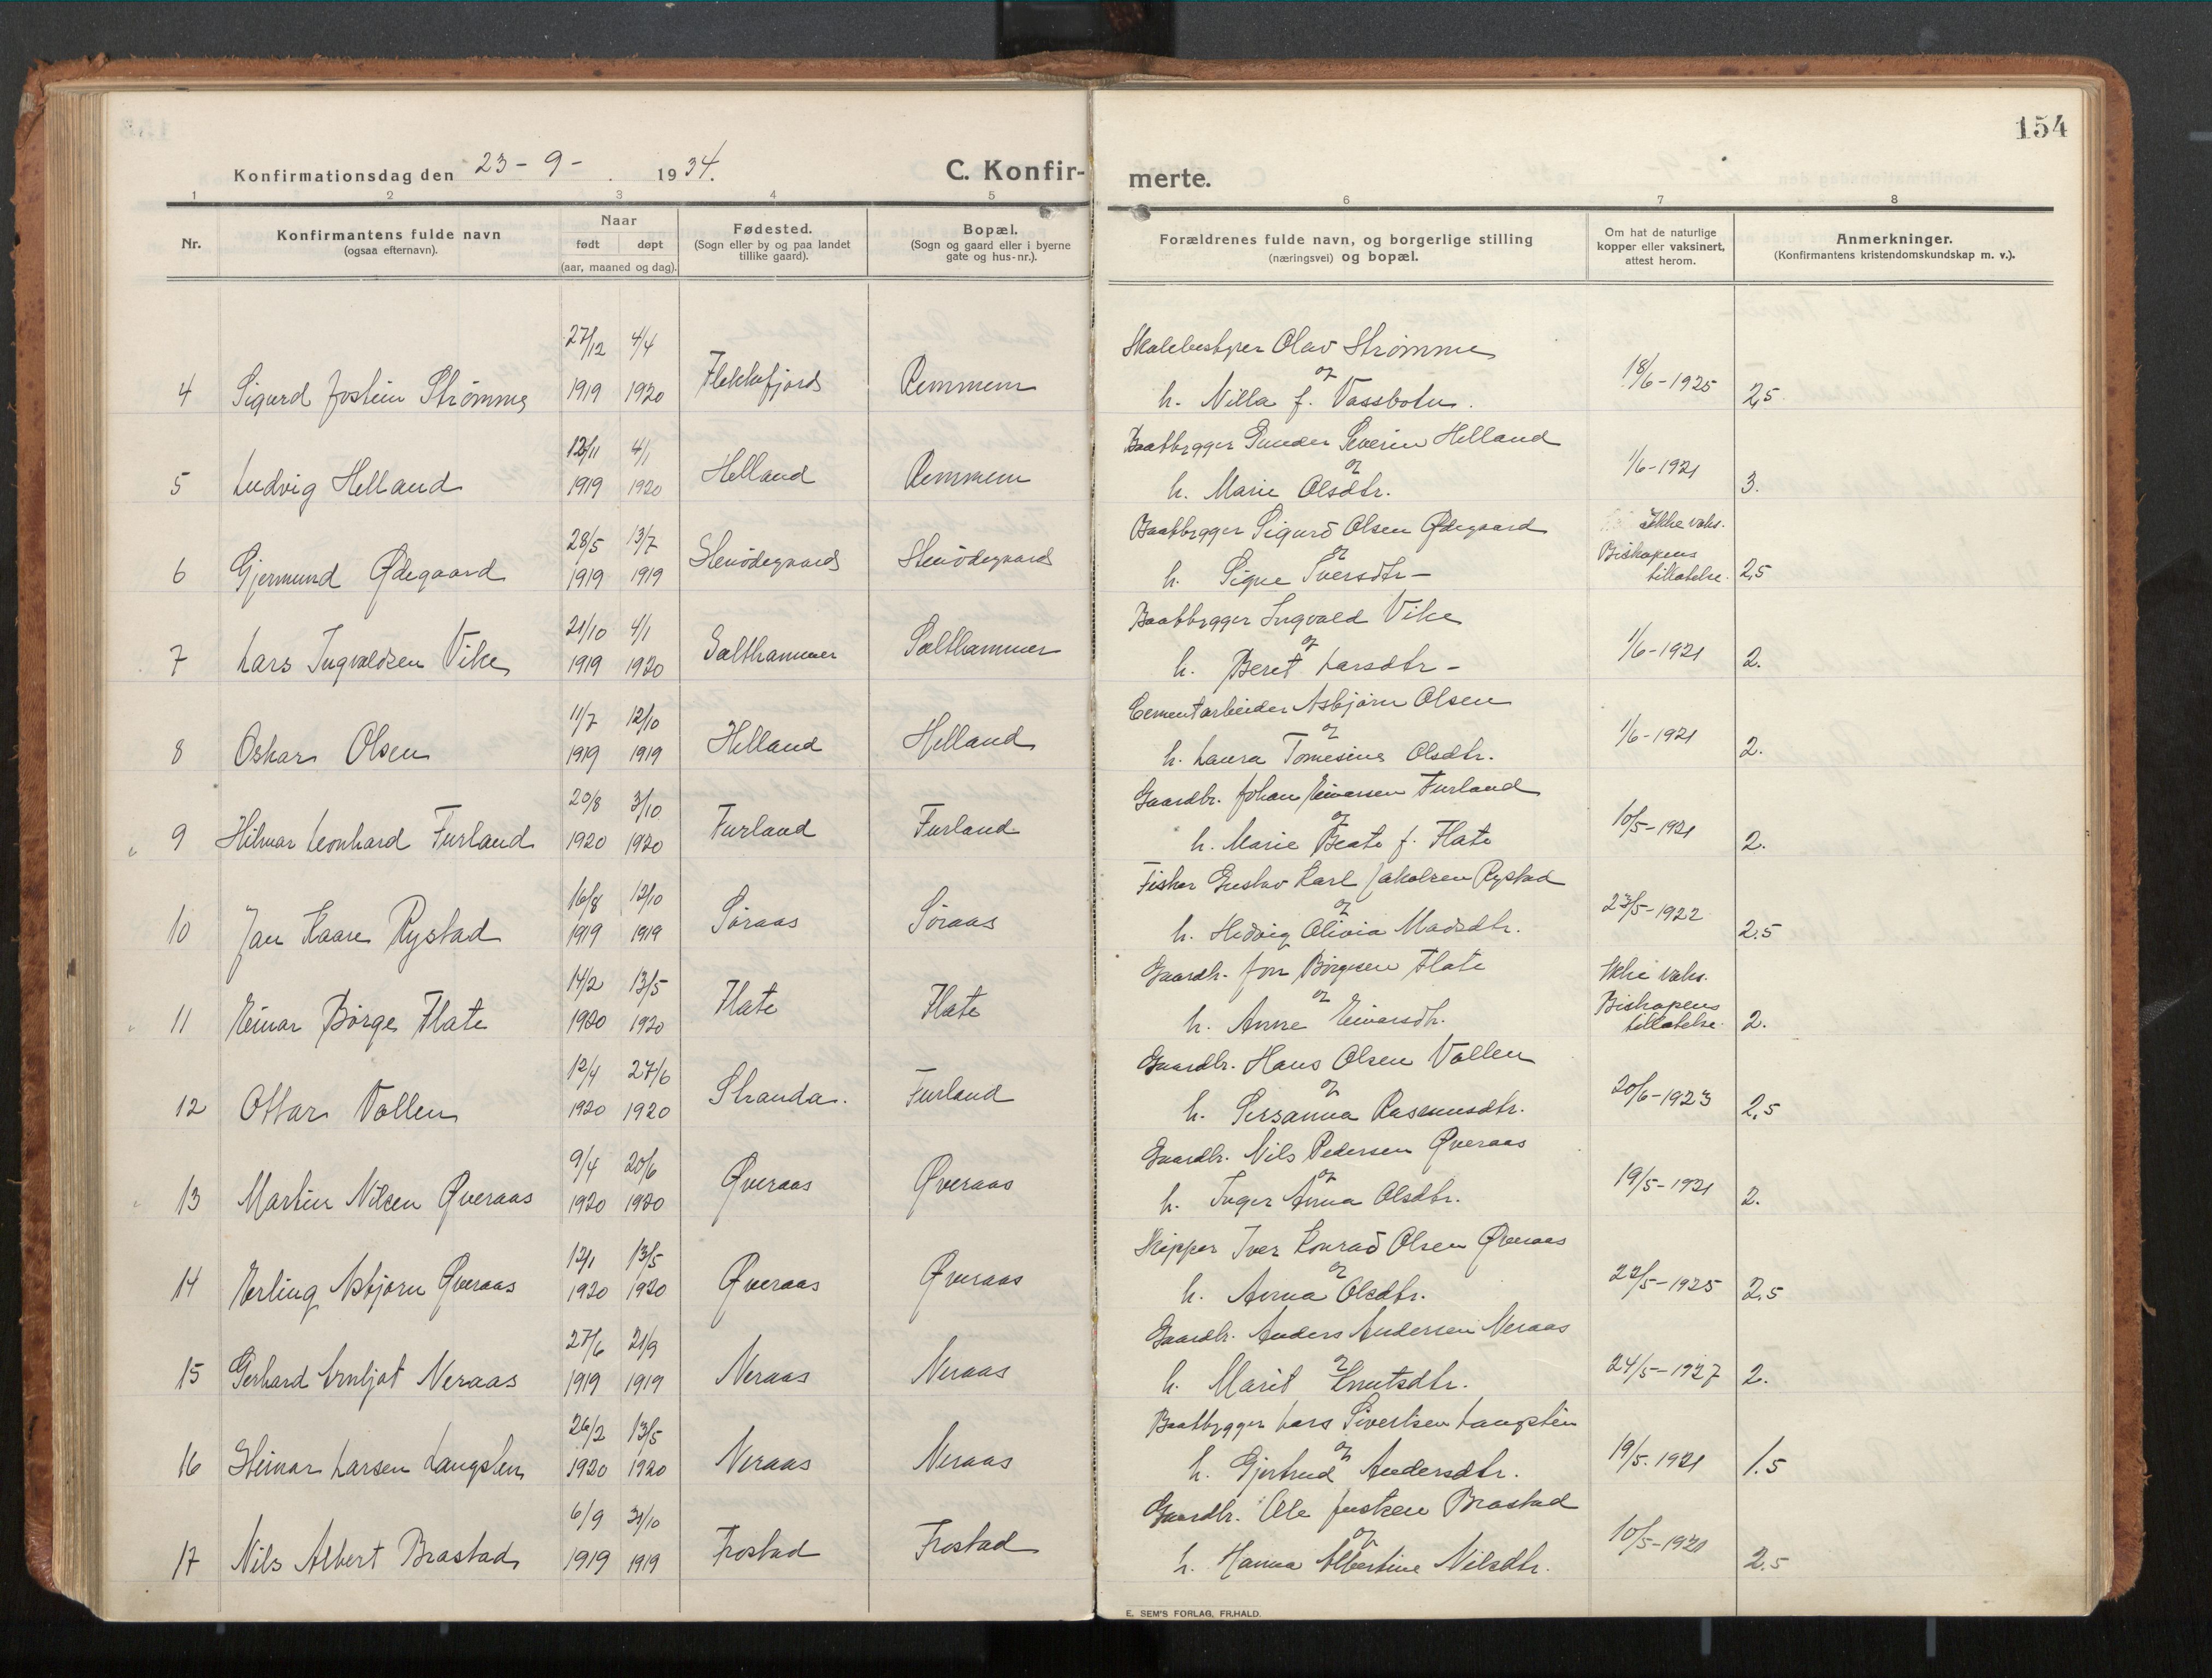 154
Konfirmationsdag den 23-9- . 1934.
C. Konfir-
merte.
1 2 3 4 5 6 7 8
Nr.
Konfirmantens fulde navn
(ogsaa efternavn).
Naar
født døpt
(aar, maaned og dag).
Fødested.
(Sogn eller by og paa landet
tillike gaard).
Bopæl.
(Sogn og gaard eller i byerne
gate og hus-nr.).
Forældrenes fulde navn, og borgerlige stilling
(næringsvei) og bopæl.
Om hat de naturlige
kopper eller vaksinert,
attest herom.
Anmerkninger.
(Konfirmantens kristendomskundskap m. v.).
27/12 4/4 Skolebestyrer Olav Strømme
4 Sigurd Jostein Strømme 1919 1920 Flekkefjord Remmem og 18/6-1925 2,5
h. Nilla f. Vassbotn.
12/11 4/1 Baatbygger Gunder Severin Helland
5 Ludvig Helland 1919 1920 Helland Remmem og 1/6-1921 3.
h. Marie Olsdtr.
28/5 13/7 Baatbygger Sigurd Olsen Ødegaard Ikke vaks.
6 Gjermund Ødegaard 1919 1919 Stenödegaard Stenödegaard og Biskopens
h. Signe Iversdtr- tillatelse. 2,5
21/10 4/1 Baatbygger Ingvald Vike
7 Lars Ingvaldsen Vike 1919 1920 Salthammer Salthammer og 1/6-1921 2.
h. Beret Larsdtr-
11/7 12/10 Cementarbeider Asbjørn Olsen
8 Oskar Olsen 1919 1919 Helland Helland og 1/6-1921 2.
h. Laura Tomesine Olsdtr.
20/8 3/10 Gaardbr. Johan Einarsen Furland
9 Hilmar Leonhard Furland 1920 1920 Furland Furland og 10/5-1921 2.
h. Marie Beate f. Flate
16/8 12/10 Fisker Gustav Karl Jakobsen Rystad
10 Jan Kaare Rystad 1919 1919 Søraas Søraas og 23/5-1922 2.5
h. Hedvig Olivia Madsdtr.
14/2 13/5 Gaardb. Jon Børgesen Flate Ikke vaks.
11 Einar Børge Flate 1920 1920 Flate Flate og Biskopens
h. Anne Einarsdtr. tillatelse. 2.
12/4 27/6 Gaardbr. Hans Olsen Vollen
12 Ottar Vollen 1920 1920 Stranda. Furland og 20/6-1923 2,5
h. Susanna Rasmusdtr.
9/4 20/6 Gaardbr. Nils Pedersen Øveraas
13 Martin Nilsen Øveraas 1920 1920 Øveraas Øveraas og 19/5-1921 2.
h. Inger Anna Olsdtr.
12/1 13/5 Skipper Iver Konrad Olsen Øveraas
14 Erling Asbjørn Øveraas 1920 1920 Øveraas Øveraas og 22/5-1925 2.5
h. Anna Olsdtr.
27/6 21/9 Gaardbr. Anders Andersen Neraas
15 Gerhard Arnljot Neraas 1919 1919 Neraas Neraas og 24/5-1927 2.
h. Marit Knutsdtr.
26/2 13/5 Baatbygger Lars Sivertsen Langsten
16 Steinar Larsen Langsten 1920 1920 Neraas Neraas og 19/5.1921 1.5
h. Gjertrud Andersdtr.
6/9 31/10 Gaardbr. Ole Justsen Brastad
17 Nils Albert Brastad 1919 1919 Frostad Frostad og 10/5-1921 2.5
h. Hanna Albertine Nilsdtr.
E. SEM'S FORLAG, FR.HALD.